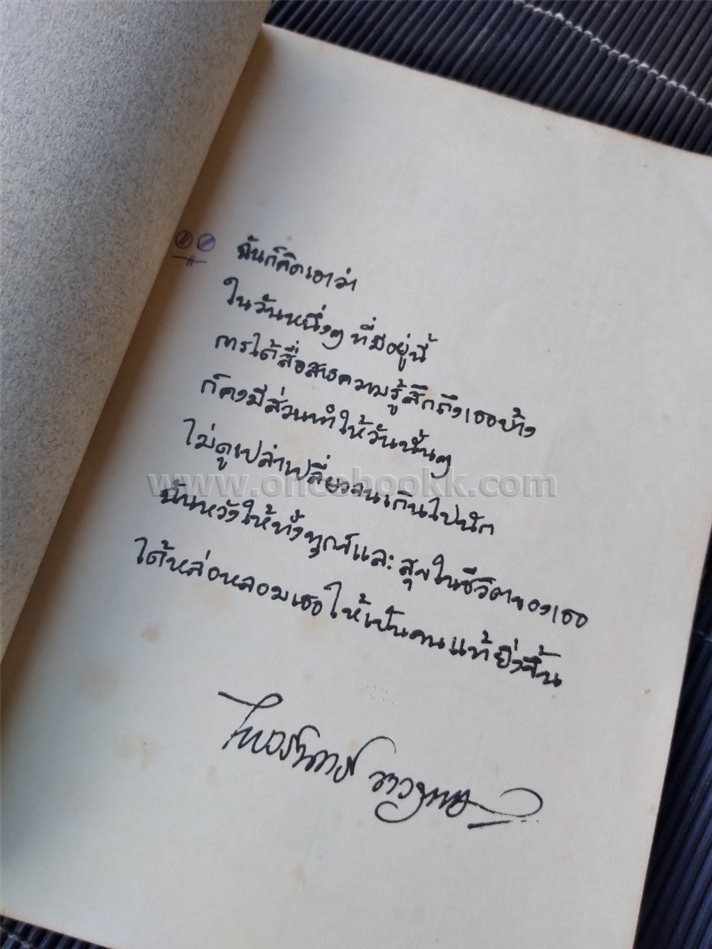 ฉันก็คิดเอาว่า
ในวันหนึ่งๆ ที่มีอยู่นี้
การได้สื่อสารความรู้สึกถึงเธอบ้าง
ก็คงมีส่วนทำให้วันนั้นๆ
ไม่ดูเปล่าเปลี่ยวจนเกินไปนัก
www.oncebookk.com
ฉันหวังให้ทั้งทุกข์และสุขในชีวิตของเธอ
ได้หล่อหลอมเธอให้เป็นคนแท้ยิ่งขึ้น